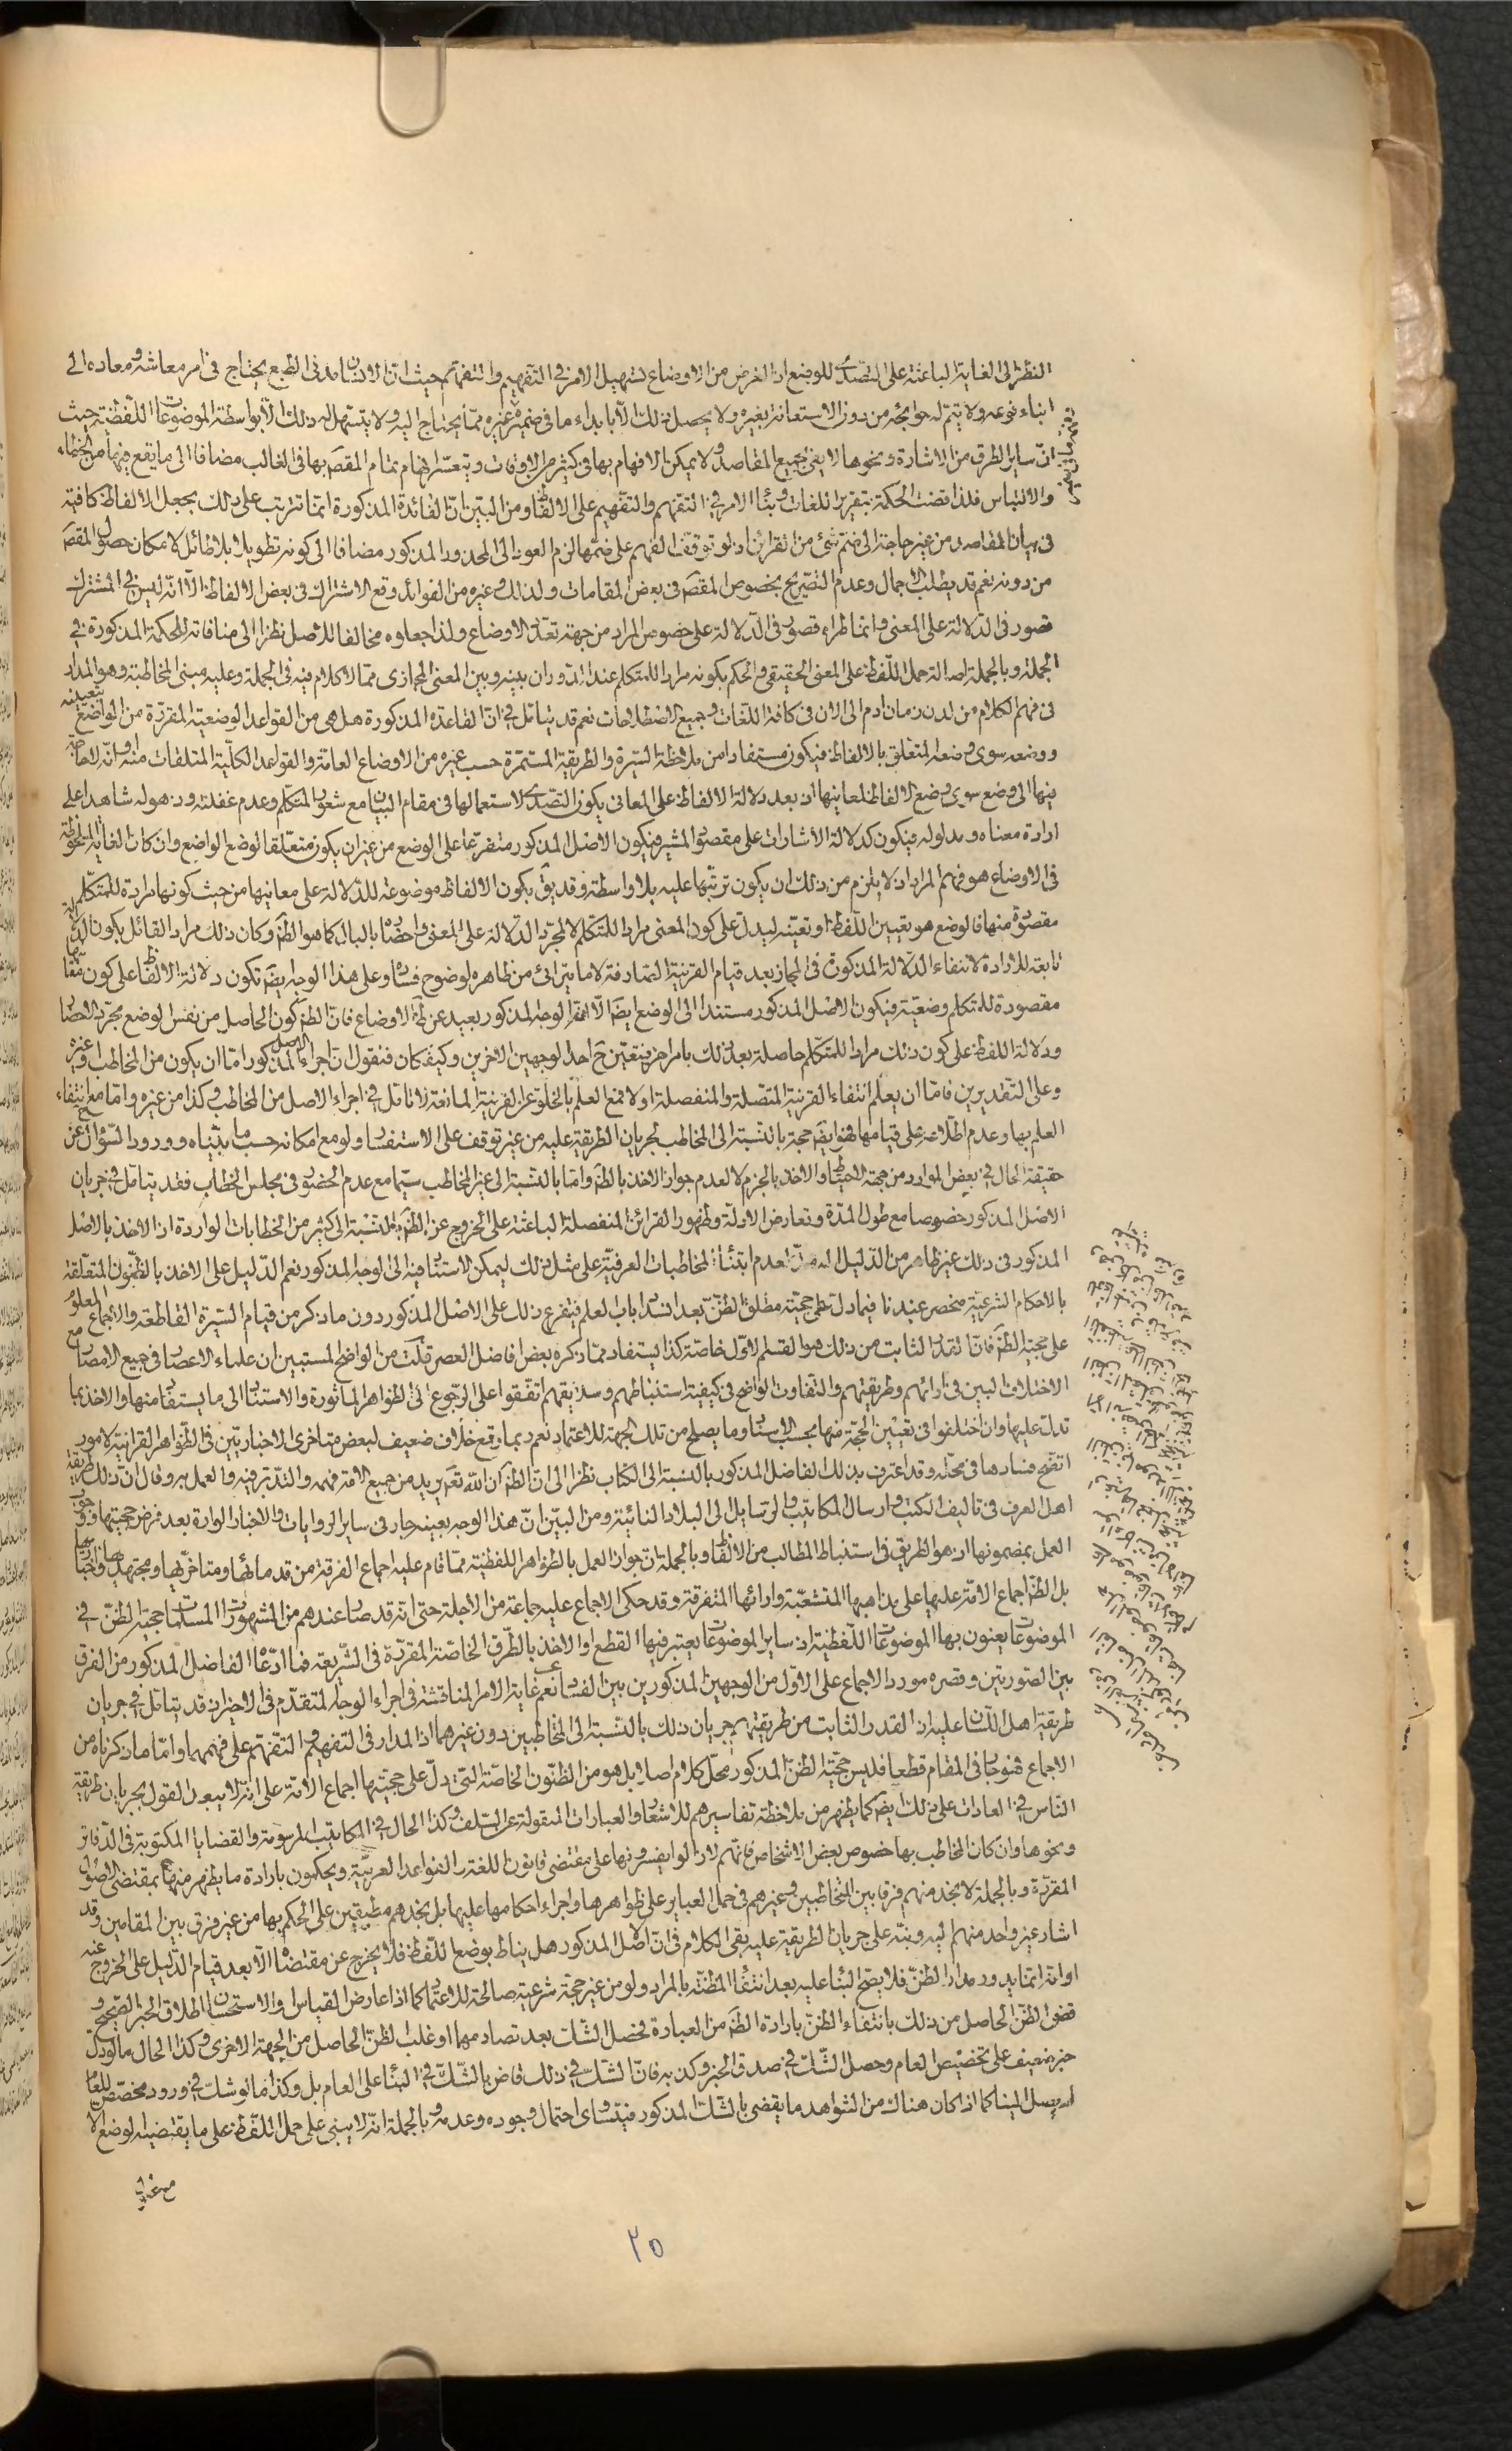 النظر الى الغاية الباعثة على التصدى للوضع اذ الغرض من الاوضاع تسهيل الامر فى التفهيم والتفهم حيث ان الانسان مدنى الطبع يحتاج فى امر معاشه ومعاده الى
ابناء نوعه ولا يتم له حوائجه من دون الاستعانة بغيره ولا يحصل ذلك الا بابداء ما فى ضميره غيره مما يحتاج اليه ولا يتسهل له ذلك الا بواسطة الموضوعات اللفظية حيث
ان ساير الطرق من الاشارة ونحوها لا يفى بجميع المقاصد ولا يمكن الافهام بها فى كثير من الاوقات ويتعسر افهام تمام المقصَ بها فى الغالب مضافا الى ما يقع فيها من الخطاء
والالتباس فلذا قضت الحكمة بتقرير اللغات وبناء الامر فى التفهم والتفهيم على الالفاظ ومن البين ان الفائدة المذكورة انما تترتب على ذلك بجعل الالفاظ كافية
فى بيان المقاصد من غير حاجة الى ضم شئ من القرائن اذ لو توقف الفهم على ضمها لزم العود الى المحذور المذكور مضافا الى كونه تطويلا بلا طائل لامكان حصول المقصَ
من دونه نعم قد يطلب الاجمال وعدم التصريح بخصوص المقصَ فى بعض المقامات ولذلك وغيره من الفوائد وقع الاشتراك فى بعض الالفاظ الا انه ليس فى المشترك
قصور فى الدلالة على المعنى وانما طراء قصور فى الدلالة على خصوص المراد من جهة تعدد الاوضاع ولذا جعلوه مخالفا للاصل نظرا الى منافاته للحكمة المذكورة فى
الجملة وبالجملة اصالة حمل اللفظ على المعنى الحقيقى والحكم بكونه مراد المتكلم عند الدوران بينه وبين المعنى المجازى مما لا كلام فيه فى الجملة وعليه مبنى المخاطبة وهو المدار
فى فهم الكلام من لدن زمان ادم الى الان فى كافة اللغات وجميع الاصطلاحات نعم قد يتامل فى ان القاعدة المذكورة هل هى من القواعد الوضعية المقررة من الواضع بتعيينه
ووضعه سوى وضعه المتعلق بالالفاظ فيكون مستفادا من ملاحظة السيرة والطريقة المستمرة حسب غيره من الاوضاع العامة والقواعد الكلية المتلقات منه او انه لا حاجة
فيها الى وضع سوى وضع الالفاظ لمعانيها اذ بعد دلالة الالفاظ على المعانى يكون التصدى لاستعمالها فى مقام البيان مع شعور المتكلم وعدم غفلته وذهوله شاهدا على
ارادة معناه ومدلوله فيكون كدلالة الاشارات على مقصود المشير فيكون الاصل المذكور متفرعا على الوضع من غير ان يكون متعلقا لوضع الواضع وان كانت الغاية الملحوظة
فى الاوضاع هو فهم المراد اذ لا يلزم من ذلك ان يكون ترتبها عليه بلا واسطة وقد يق بكون الالفاظ موضوعة للدلالة على معانيها من حيث كونها مرادة للمتكلم
مقصودة منها فالوضع هو تعيين اللفظ او تعينه ليدل على كون المعنى مرادا للمتكلم لا لمجرد الدلالة على المعنى واحضاره بالبال كما هو الظَ وكان ذلك مراد القائل بكون الدلالة
تابعة للارادة لانتفاء الدلالة المذكورة فى المجاز بعد قيام القرينة الصارفة لا ما يترائى من ظاهره لوضوح فساده وعلى هذا الوجه ايضَ تكون دلالة الالفاظ على كون معانيها
مقصودة للمتكلم وضعية فيكون الاصل المذكور مستندا الى الوضع ايضَ الا ان الوجه المذكور بعيد عن ظَ الاوضاع فان الظَ كون الحاصل من نفس الوضع مجرد الاحضار
ودلالة اللفظ على كون ذلك مرادا للمتكلم حاصلة بعد ذلك بامر اخر فيتعين حَ احد الوجهين الاخرين وكيف كان فنقول ان اجراء الاصل المذكور اما ان يكون من المخاطب او غيره
وعلى التقديرين فاما ان يعلم انتفاء القرينة المتصلة والمنفصلة اولا فمع العلم بالخلو عن القرينة المانعة لا تامل فى اجراء الاصل من المخاطب وكذا من غيره واما مع انتفاء
العلم بها وعدم اطلاعه على قيامها فهو ايضَ حجة بالنسبة الى المخاطب لجريان الطريقة عليه من غير توقف على الاستفسار ولو مع امكانه حسب ما بيناه وورود السؤال عن
حقيقة الحال فى بعض الموارد من جهة الاحتياط والاخذ بالجزم لا لعدم جواز الاخذ بالظَ واما بالنسبة الى غير المخاطب سيما مع عدم الحضور فى مجلس الخطاب فقد يتامل فى جريان
الاصل المذكور خصوصا مع طول المدة وتعارض الادلة وظهور القرائن المنفصلة الباعثة على الخروج عن الظَ بالنسبة الى كثير من الخطابات الواردة اذ الاخذ بالاصل
المذكور فى ذلك غير ظاهر من الدليل لعدم ابتناء المخاطبات العرفية على مثل ذلك ليمكن الاستناد فيه الى الوجه المذكور نعم الدليل على الاخذ بالظنون المتعلقة
بالاحكام الشرعية منحصر عندنا فيما دل على حجية مطلق الظن بعد انسداد باب العلم فيتفرع ذلك على الاصل المذكور دون ما ذكر من قيام السيرة القاطعة والاجماع المعلوم
على حجية الظَ فان القدر الثابت من ذلك هو القسم الاول خاصة كذا يستفاد مما ذكره بعض افاضل العصر قلت من الواضح المستبين ان علماء الاعصار فى جميع الامصار مع
الاختلاف البين فى ارائهم وطريقتهم والتفاوت الواضح فى كيفية استنباطهم وسلايقهم اتفقوا على الرجوع الى الظواهر الماثورة والاستناد الى ما يستفاد منها والاخذ بما
تدل عليها وان اختلفوا فى تعيين الحجة منها بحسب الاسناد وما يصلح من تلك الجهة للاعتماد نعم ربما وقع خلاف ضعيف لبعض متاخرى الاخباريين فى الظواهر القرانية لامور
اتضح فسادها فى محله وقد اعترف بذلك الفاضل المذكور بالنسبة الى الكتاب نظرا الى ان الظَ ان الله تعَ يريد من جميع الامة فهمه والتدبر فيه والعمل به وقال ان ذلك طريقة
اهل العرف فى تاليف الكتب وارسال المكاتيب والرسايل الى البلاد النائية ومن البين ان هذا الوجه بعينه جار فى ساير الروايات والاخبار الواردة بعد فرض حجيتها ووجوب
العمل بمضمونها اذ هو الطريق فى استنباط المطالب من الالفاظ وبالجملة ان جواز العمل بالظواهر اللفظية مما قام عليه اجماع الفرقة من قدمائها ومتاخريها ومجتهديها واخبارييها
بل الظَ اجماع الامة عليها على مذاهبها المتشعبة وارائها المتفرقة وقد حكى الاجماع عليه جماعة من الاجلة حتى انه قد صار عندهم من المشهورات المسلمات حجية الظن فى
الموضوعات يعنون بها الموضوعات اللفظية اذ ساير الموضوعات يعتبر فيها القطع او الاخذ بالطرق الخاصة المقررة فى الشريعة فما ادعاه الفاضل المذكور من الفرق
بين الصورتين وقصره مورد الاجماع على الاول من الوجهين المذكورين بين الفساد نعم غاية الامر المناقشة فى اجراء الوجه المتقدم فى الاخير اذ قد يتامل فى جريان
طريقة اهل اللسان عليه اذ القدر الثابت من طريقتهم جريان ذلك بالنسبة الى المخاطبين دون غيرهما اذ المدار فى التفهيم والتفهم على فهمهما واما ما ذكرناه من
الاجماع فهو جار فى المقام قطعا فليس حجية الظن المذكور محل كلام اصلا بل هو من الظنون الخاصة التى دل على حجيتها اجماع الامة على انه لا يبعد القول بجريان طريقة
الناس فى العادات على ذلك ايضَ كما يظهر من ملاحظة تفاسيرهم للاشعار والعبارات المنقولة عن السلف وكذا الحال فى المكاتيب المرسومة والقضايا المكتوبة فى الدفاتر
ونحوها وان كان المخاطب بها خصوص بعض الاشخاص فانهم لا زالوا يفسرونها على مقتضى قانون اللغة والقواعد العربية ويحكمون بارادة ما يظهر منها بمقتضى الاصول
المقررة وبالجملة لا نجد منهم فرقا بين المخاطبين وغيرهم فى حمل العباير على ظواهرها واجراء احكامها عليها بل نجدهم مطبقين على الحكم بها من غير فرق بين المقامين وقد
اشار غير واحد منهم اليه ونبه على جريان الطريقة عليه بقى الكلام فى ان الاصل المذكور هل يناط بوضع اللفظ فلا يخرج عن مقتضاه الا بعد قيام الدليل على الخروج عنه
او انه انما يدور مدار الظن فلا يصح البناء عليه بعد انتفاء المظنة بالمراد ولو من غير حجة شرعية صالحة للاعتماد كما اذا عارض القياس والاستحسان اطلاق الخبر الصحيح و
قضى الظن الحاصل من ذلك بانتفاء الظن بارادة الظَ من العبارة فحصل الشك بعد تصادمهما او غلب الظن الحاصل من الجهة الاخرى وكذا الحال ما لو دل
خبر ضعيف على تخصيص العام وحصل الشك فى صدق الخبر وكذبه فان الشك فى ذلك قاض بالشك فى البناء على العام بل وكذا ما لو شك فى ورود مخصص للعام
لم يصل الينا كما اذا كان هناك من الشواهد ما يقضى بالشك المذكور فيتساوى احتمال وجوده وعدمه وبالجملة انه لا يبنى على حمل اللفظ على ما يقتضيه الوضع الا
مع غلبة
٢٥